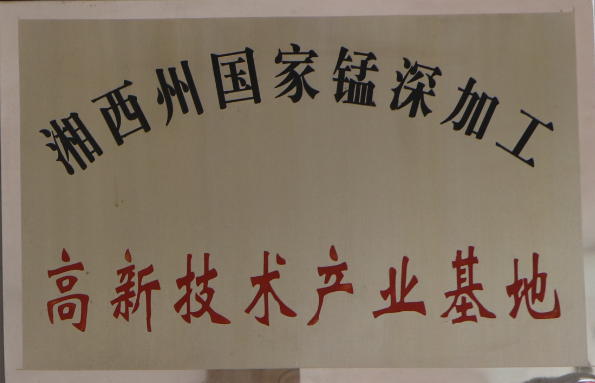 湘西州国家锰深加工
高新技术产业基地